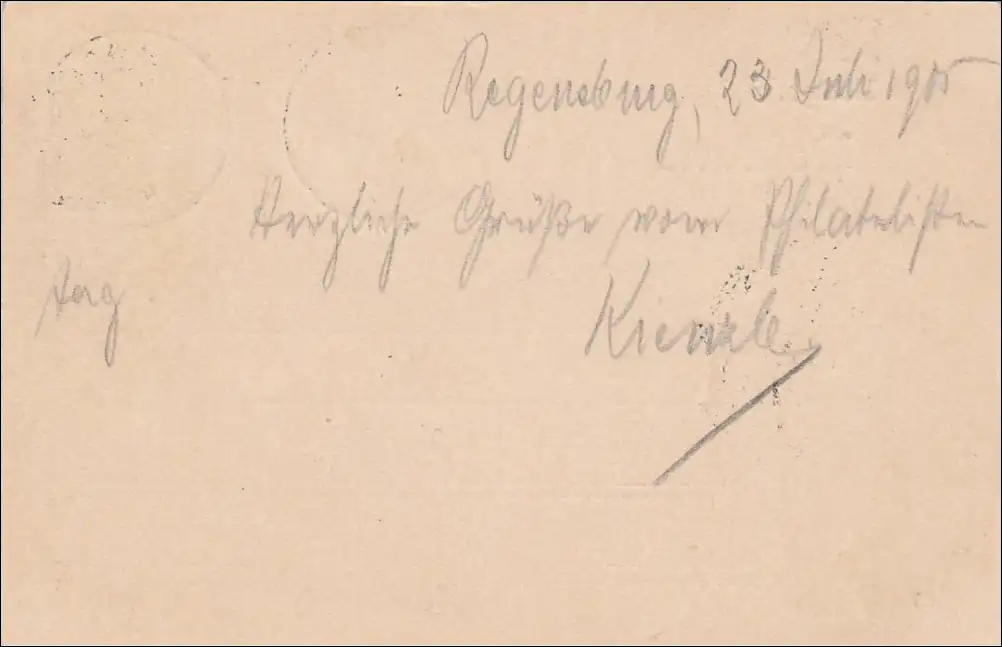 Regensburg, 23. Juli 1905
Herzliche Grüße vom Philatelisten
tag.
Kienzle.